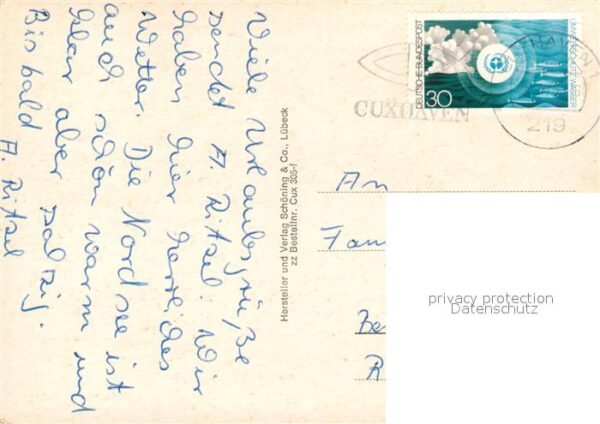 Viele Urlaubsgrüße
sendet A. Ritsel. Wir
haben hier herrliches
Wetter. Die Nordsee ist
auch schön warm und
klar aber salzig.
Bis bald A. Ritsel
Hersteller und Verlag Schöning & Co., Lübeck
zz Bestellnr. Cux 305-f
DEUTSCHE BUNDESPOST
30
UMWELTSCHUTZ: WASSER
CUXHAVEN
219
An
Fam
Be
R
privacy protection
Datenschutz